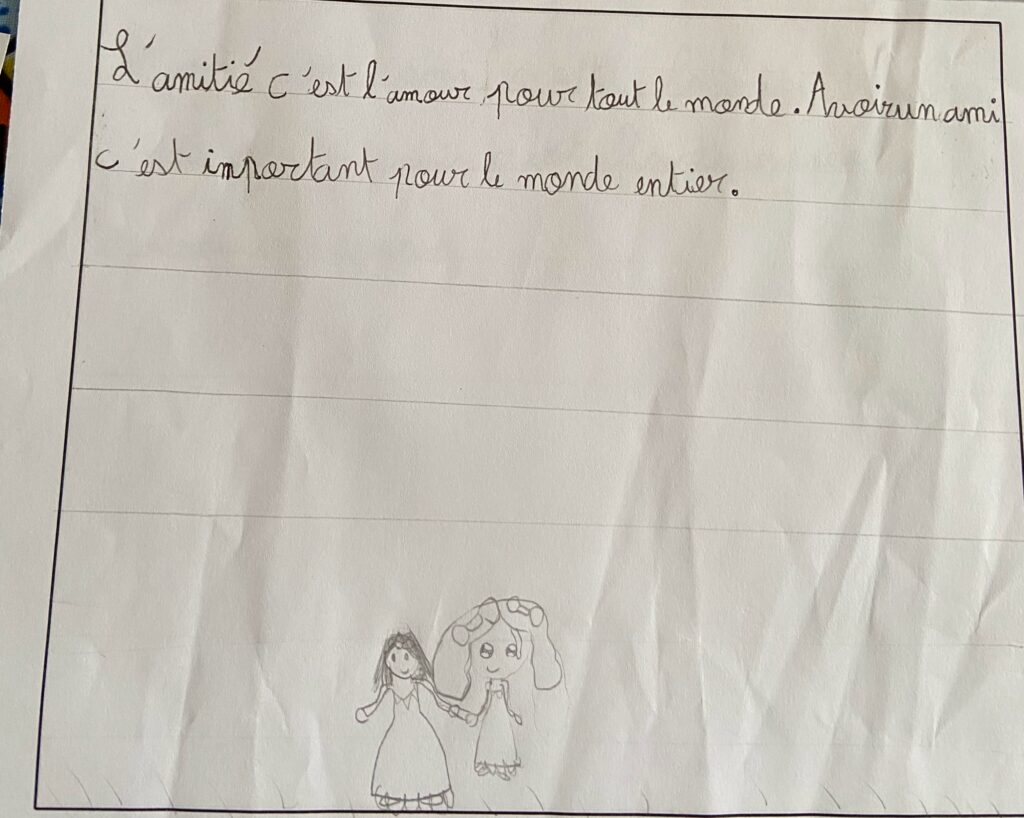 L'amitié c'est l'amour pour tout le monde. Avoir un ami
c'est important pour le monde entier.